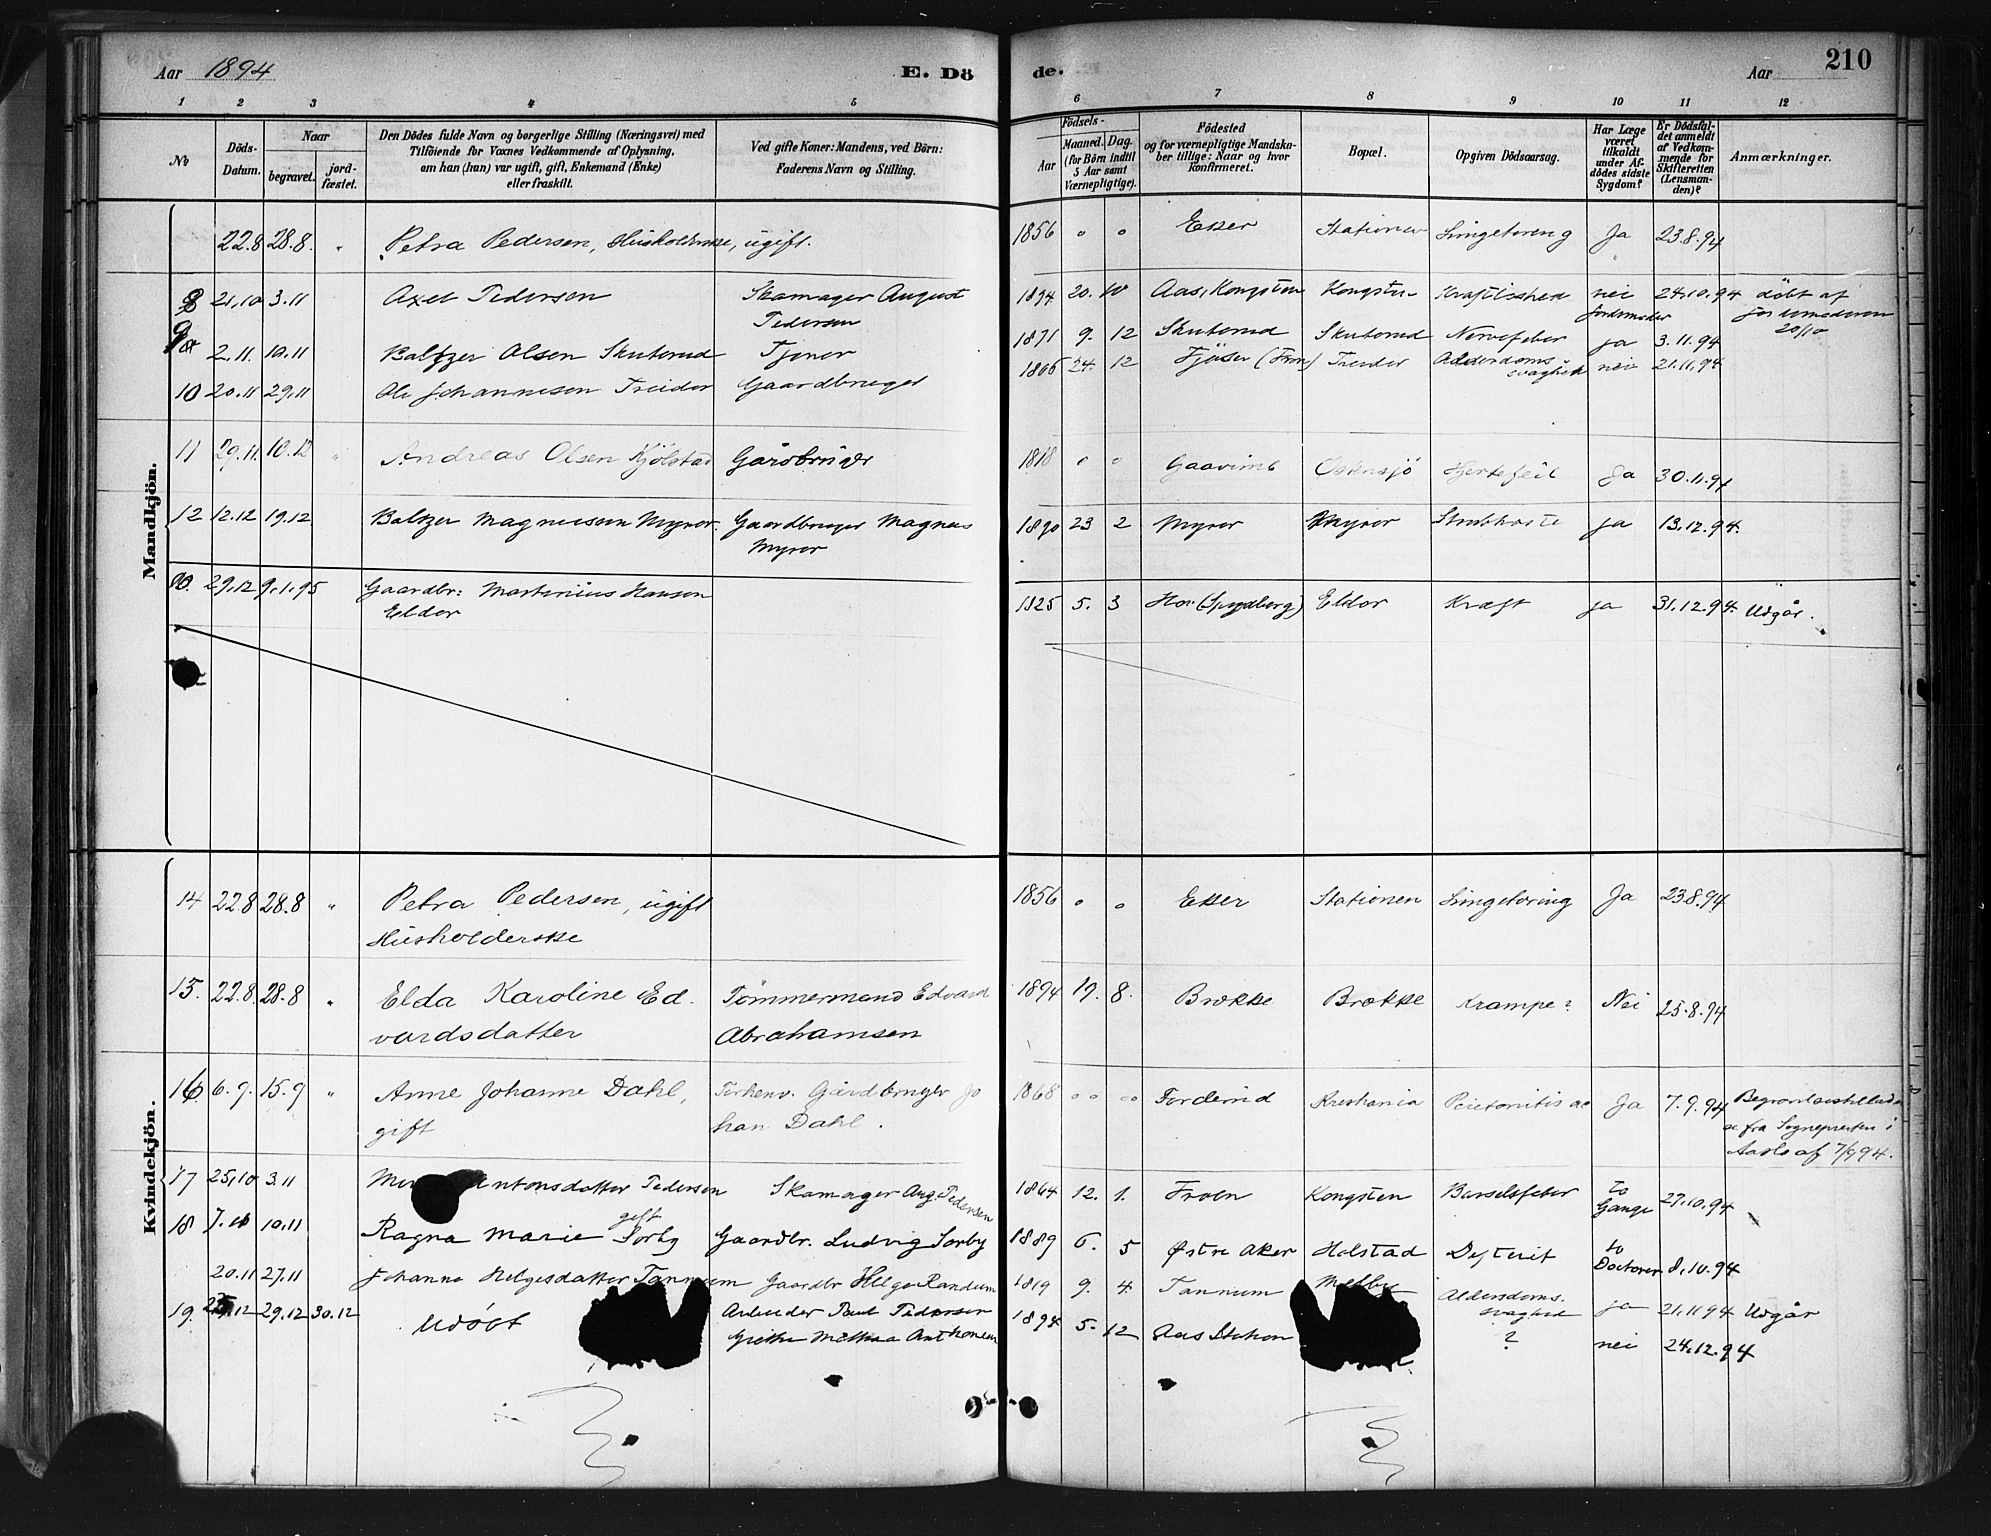 Aar 1894 E. Dö
de. Aar 210
1 2 3 4 5 6 7 8 9 10 11 12
No
Döds-Datum.
Naar
begravet.
jord-fæstet.
Den Dödes fulde Navn og borgerlige Stilling (Næringsvei) med
Tilföiende for Voxnes Vedkommende af Oplysning,
om han (hun) var ugift, gift, Enkemand (Enke)
eller fraskilt.
Ved gifte Koner: Mandens, ved Börn:
Faderens Navn og Stilling.
Födsels-
Aar
Maaned. Dag.
(for Börn indtil
5 Aar samt
Værnepligtige).
Födested
og for værnepligtige Mandska-
ber tillige: Naar og hvor
konfirmeret.
Bopæl.
Opgiven Dödsaarsag.
Har Læge
været
tilkaldt
under Af-
dödes sidste
Sygdom?
Er Dödsfal-
det anmeldt
af Vedkom-
mende for
Skifteretten
(Lensman-
den)?
Anmærkninger.
Mandkjön.
22.8 28.8. " Petra Pedersen, Husholderske, ugift. 1856 o o Eker Stationen Lungetæring Ja 23.8.94
8 21.10 3.11 Axel Pedersen Skomager August 1894 20. 10 Aas, Kongsten Kongsten Kraftløshed nei 24.10.94 døbt af
Pedersen jordemoder jordemoderen
20/10
9 2.11. 10.11 Baltzer Olsen Skuterud Tjener 1871 9. 12 Skuterud Skuterud Nervefeber ja 3.11.94
10 20.11 29.11 Ole Johannesen Treider Gaardbruger 1806 24. 12 Fjøser (Fron) Treider Alderdoms nei 21.11.94
svaghed
11 29.11. 10.12 " Andreas Olsen Kjölstad Gårdbruger 1818 o o Østensjö Hjertefeil Ja 30.11.94
12 12.12 19.12 Baltzer Magnussen Myrer. Gaardbruger Magnus 1890 23 2 Myrer Myrer Strubhoste ja 13.12.94.
Myrer
29.12 9.1.95 Gaardbr: Martinius Hansen 1825 5. 3 (Spydberg) Eldor Kræft ja 31.12.94. Udgår.
Eldor
Kvindekjön.
14 22.8 28.8 " Petra Pedersen, ugift 1856 o o Eker Stationen Lungetæring Ja 23.8.94
Husholderske
15. 22.8. 28.8 " Elda Karoline Ed- Tömmermand Edvard 1894 19. 8. Brække Brække Krampe? Nei 25.8.94
vardsdatter Abrahamsen
16 6.9. 15.9 " Anne Johanne Dahl, Gårdbruger Jo 1868 o o o o Forderud Kristiania Peritonitis ac Ja 7.9.94
gift han Dahl.
fra Sognepresten i
af 7/9 94.
17 25.10 3.11 Antonsdatter Pedersen Skomager Aug. Pedersen 1864 12. 1. Froen Kongsten Barselfeber to 27.10.94
gift Gange
18 7. 10.11 Ragna Marie Sørby Gaardbr. Ludvig Sørby 1889 6. 5 Østre Aker Holstad Difterit to 8.10.94
Doctorer
20.11 27.11 Johanne Helgesdatter Tannum Gaardbr Helge Randum 1819 9. 4. Tannum Alderdoms- ja 21.11.94 Udgår
svaghed
19. 29.12 30.12 Udöbt Arbeider Paul Pedersen 1894 5. 12 Aas Station ? nei 24.12.94